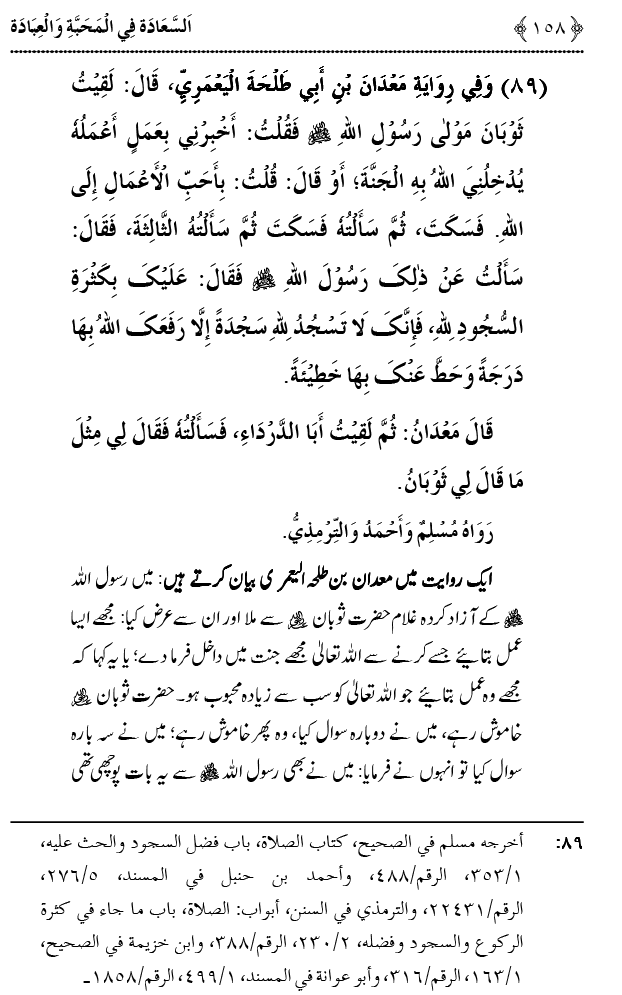 اَلسَّعَادَة فِي الْمَحَبَّةِ وَالْعِبَادَة
﴿١٥٨﴾
(٨٩) وَفِي رِوَايَةِ مَعْدَانَ بْنِ أَبِي طَلْحَةَ الْيَعْمَرِيِّ، قَالَ: لَقِيْتُ
ثَوْبَانَ مَوْلٰى رَسُوْلِ اللهِ ﷺ فَقُلْتُ: أَخْبِرْنِي بِعَمَلٍ أَعْمَلُهُ
يُدْخِلُنِيَ اللهُ بِهِ الْجَنَّةَ؛ أَوْ قَالَ: قُلْتُ: بِأَحَبِّ الْأَعْمَالِ إِلَى
اللهِ. فَسَكَتَ، ثُمَّ سَأَلْتُهُ فَسَكَتَ ثُمَّ سَأَلْتُهُ الثَّالِثَةَ، فَقَالَ:
سَأَلْتُ عَنْ ذٰلِكَ رَسُوْلَ اللهِ ﷺ فَقَالَ: عَلَيْكَ بِكَثْرَةِ
السُّجُودِ لِلهِ، فَإِنَّكَ لَا تَسْجُدُ لِلهِ سَجْدَةً إِلَّا رَفَعَكَ اللهُ بِهَا
دَرَجَةً وَحَطَّ عَنْكَ بِهَا خَطِيْئَةً.
قَالَ مَعْدَانُ: ثُمَّ لَقِيْتُ أَبَا الدَّرْدَاءِ، فَسَأَلْتُهُ فَقَالَ لِي مِثْلَ
مَا قَالَ لِي ثَوْبَانُ.
رَوَاهُ مُسْلِمٌ وَأَحْمَدُ وَالتِّرْمِذِيُّ.
ایک روایت میں معدان بن طلحہ الیعمری بیان کرتے ہیں: میں رسول اللہ
ﷺ کے آزاد کردہ غلام حضرت ثوبان ؓ سے ملا اور ان سے عرض کیا: مجھے ایسا
عمل بتایئے جسے کرنے سے اللہ تعالیٰ مجھے جنت میں داخل فرما دے؛ یا یہ کہا کہ
مجھے وہ عمل بتایئے جو اللہ تعالیٰ کو سب سے زیادہ محبوب ہو۔ حضرت ثوبان ؓ
خاموش رہے، میں نے دوبارہ سوال کیا، وہ پھر خاموش رہے؛ میں نے سہ بارہ
سوال کیا تو انہوں نے فرمایا: میں نے بھی رسول اللہ ﷺ سے یہ بات پوچھی تھی
٨٩: أخرجه مسلم في الصحيح، كتاب الصلاة، باب فضل السجود والحث عليه،
١/٣٥٣، الرقم/٤٨٨، وأحمد بن حنبل في المسند، ٥/٢٧٦،
الرقم/٢٢٤٣١، والترمذي في السنن، أبواب: الصلاة، باب ما جاء في كثرة
الركوع والسجود وفضله، ٢/٢٣٠، الرقم/٣٨٨، وابن خزيمة في الصحيح،
١/١٦٣، الرقم/٣١٦، وأبو عوانة في المسند، ١/٤٩٩، الرقم/١٨٥٨ـ